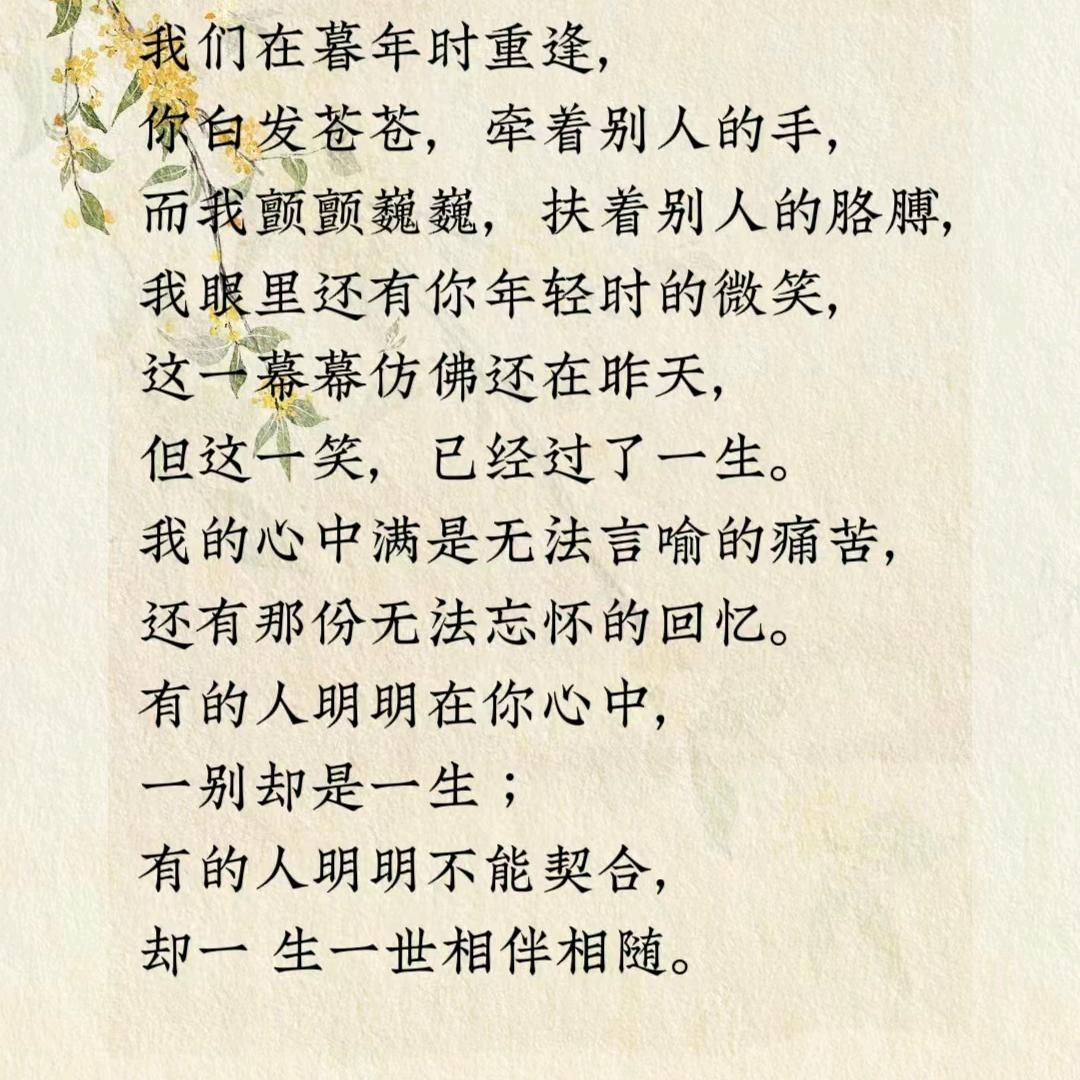 我们在暮年时重逢，
你白发苍苍，牵着别人的手，
而我颤颤巍巍，扶着别人的胳膊，
我眼里还有你年轻时的微笑，
这一幕幕仿佛还在昨天，
但这一笑，已经过了一生。
我的心中满是无法言喻的痛苦，
还有那份无法忘怀的回忆。
有的人明明在你心中，
一别却是一生；
有的人明明不能契合，
却一 生一世相伴相随。